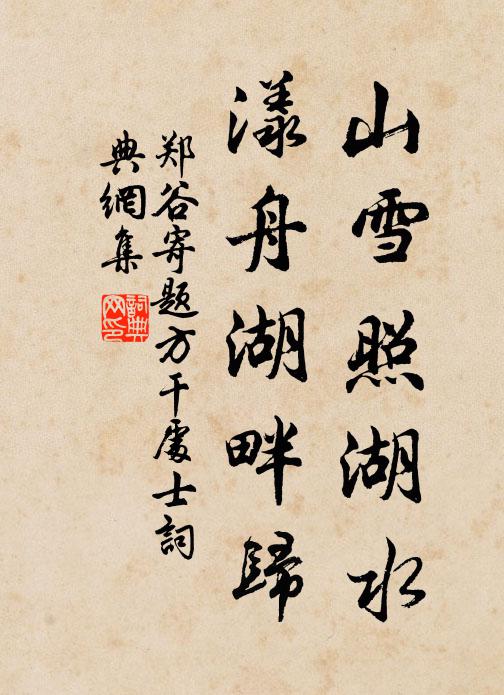 山雪照湖水
漾舟湖畔歸
郑谷寄题方干處士詞
典網集
詞典网印